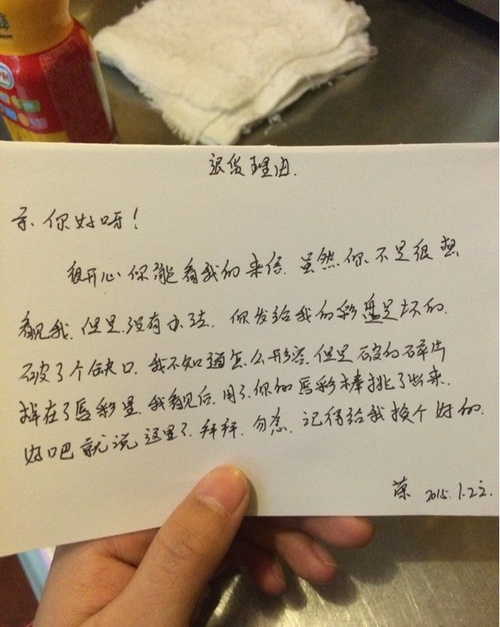 退货理由.
亲.你好呀!
很开心你能看我的来信.虽然你不是很想
看见我.但是.没有办法.你发给我的彩盘是坏的.
破了个缺口.我不知道怎么形容.但是破的碎片
掉在了唇彩里.我看见后.用了你的唇彩棒挑了出来.
好吧就说这里了.拜拜.勿念.记得给我换个好的.
2015.1.22